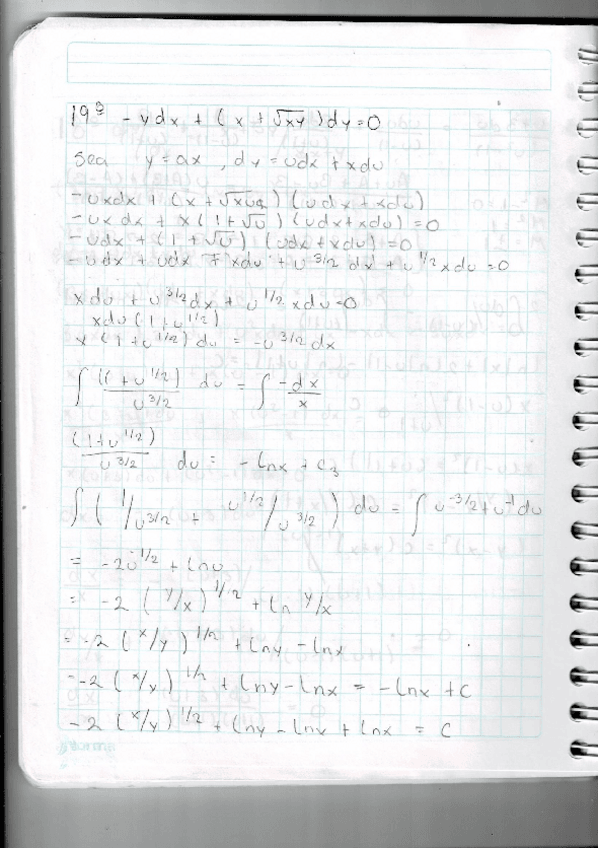 19º -ydx + (x + √xy) dy = 0
sea y = ux, dy = udx + xdu
-uxdx + (x + √xux) (udx + xdu)
-ux dx + x(1+√u) (udx + xdu) = 0
-udx + (1+√u) (udx + xdu) = 0
-udx + udx + xdu + u^3/2 dx + u^1/2 xdu = 0
xdu + u^3/2 dx + u^1/2 xdu = 0
xdu (1+u^1/2)
x (1+u^1/2) du = -u^3/2 dx
∫ ((1+u^1/2)/u^3/2 du = ∫ -dx/x
(1+u^1/2)/u^3/2 du = -lnx + c₃
∫ (1/u^3/2 + u^1/2/u^3/2) du = ∫ u^-3/2 + u^-1 du
= -2u^-1/2 + lnu
= -2 (y/x)^1/2 + ln y/x
= -2 (x/y)^1/2 + lny - lnx
= -2 (x/y)^1/2 + lny - lnx = -lnx + c
-2 (x/y)^1/2 + lny - lnx + lnx = c